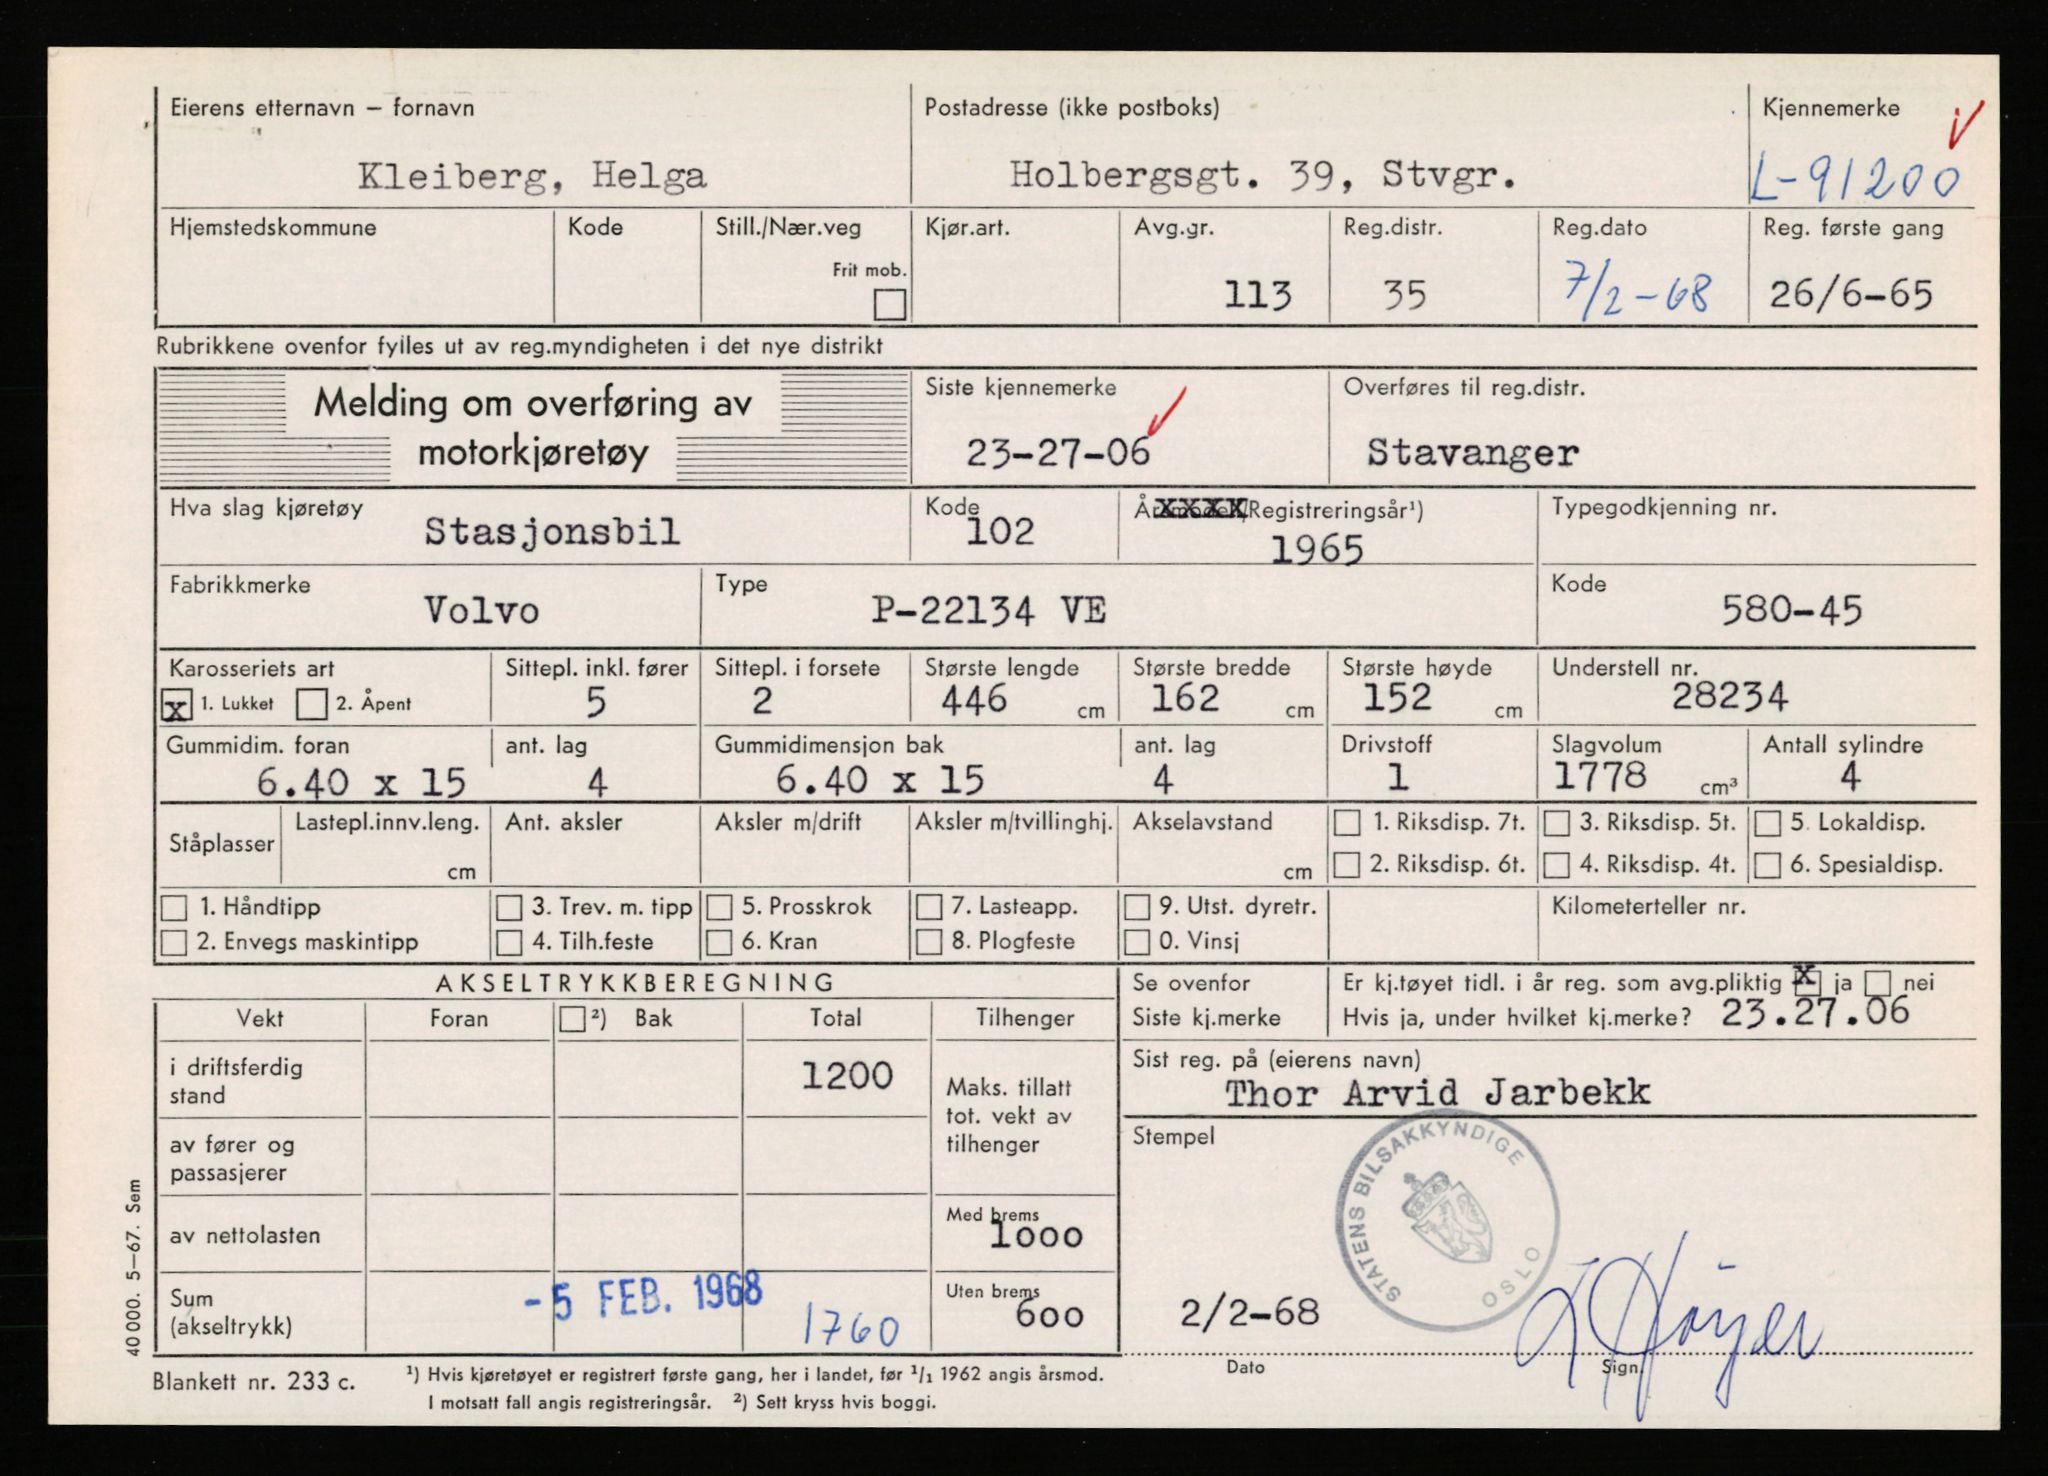 Eierens etternavn – fornavn
Kleiberg, Helga
Postadresse (ikke postboks)
Holbergsgt. 39, Stvgr.
Kjennemerke
L-91200
Hjemstedskommune
Kode
Still./Nær.veg
Frit mob.
Kjør.art.
Avg.gr.
113
Reg.distr.
35
Reg.dato
7/2-68
Reg. første gang
26/6-65
Rubrikkene ovenfor fylles ut av reg.myndigheten i det nye distrikt
Melding om overføring av
motorkjøretøy
Siste kjennemerke
23-27-06
Overføres til reg.distr.
Stavanger
Hva slag kjøretøy
Stasjonsbil
Kode
102
Årsmodell/Registreringsår¹)
1965
Typegodkjenning nr.
Fabrikkmerke
Volvo
Type
P-22134 VE
Kode
580-45
Karosseriets art
x 1. Lukket 2. Åpent
Sittepl. inkl. fører
5
Sittepl. i forsete
2
Største lengde
446 cm
Største bredde
162 cm
Største høyde
152 cm
Understell nr.
28234
Gummidim. foran
6.40 x 15
ant. lag
4
Gummidimensjon bak
6.40 x 15
ant. lag
4
Drivstoff
1
Slagvolum
1778 cm³
Antall sylindre
4
Ståplasser
Lastepl.innv.leng.
cm
Ant. aksler
Aksler m/drift
Aksler m/tvillinghj.
Akselavstand
cm
1. Riksdisp. 7t. 3. Riksdisp. 5t. 5. Lokaldisp.
2. Riksdisp. 6t. 4. Riksdisp. 4t. 6. Spesialdisp.
1. Håndtipp 3. Trev. m. tipp 5. Prosskrok 7. Lasteapp. 9. Utst. dyretr.
2. Envegs maskintipp 4. Tilh.feste 6. Kran 8. Plogfeste 0. Vinsj
Kilometerteller nr.
AKSELTRYKKBEREGNING
Vekt Foran ²) Bak Total Tilhenger
i driftsferdig
stand
1200
Maks. tillatt
tot. vekt av
tilhenger
av fører og
passasjerer
av nettolasten
Med brems
1000
Sum
(akseltrykk)
-5 FEB. 1968
1760
Uten brems
600
Se ovenfor
Siste kj.merke
Er kj.tøyet tidl. i år reg. som avg.pliktig x ja nei
Hvis ja, under hvilket kj.merke? 23.27.06
Sist reg. på (eierens navn)
Thor Arvid Jarbekk
Stempel
STATENS BILSAKKYNDIGE
OSLO
2/2-68
Dato
Høyer
Sign.
40 000. 5–67. Sem
Blankett nr. 233 c.
¹) Hvis kjøretøyet er registrert første gang, her i landet, før ¹/₁ 1962 angis årsmod.
I motsatt fall angis registreringsår. ²) Sett kryss hvis boggi.